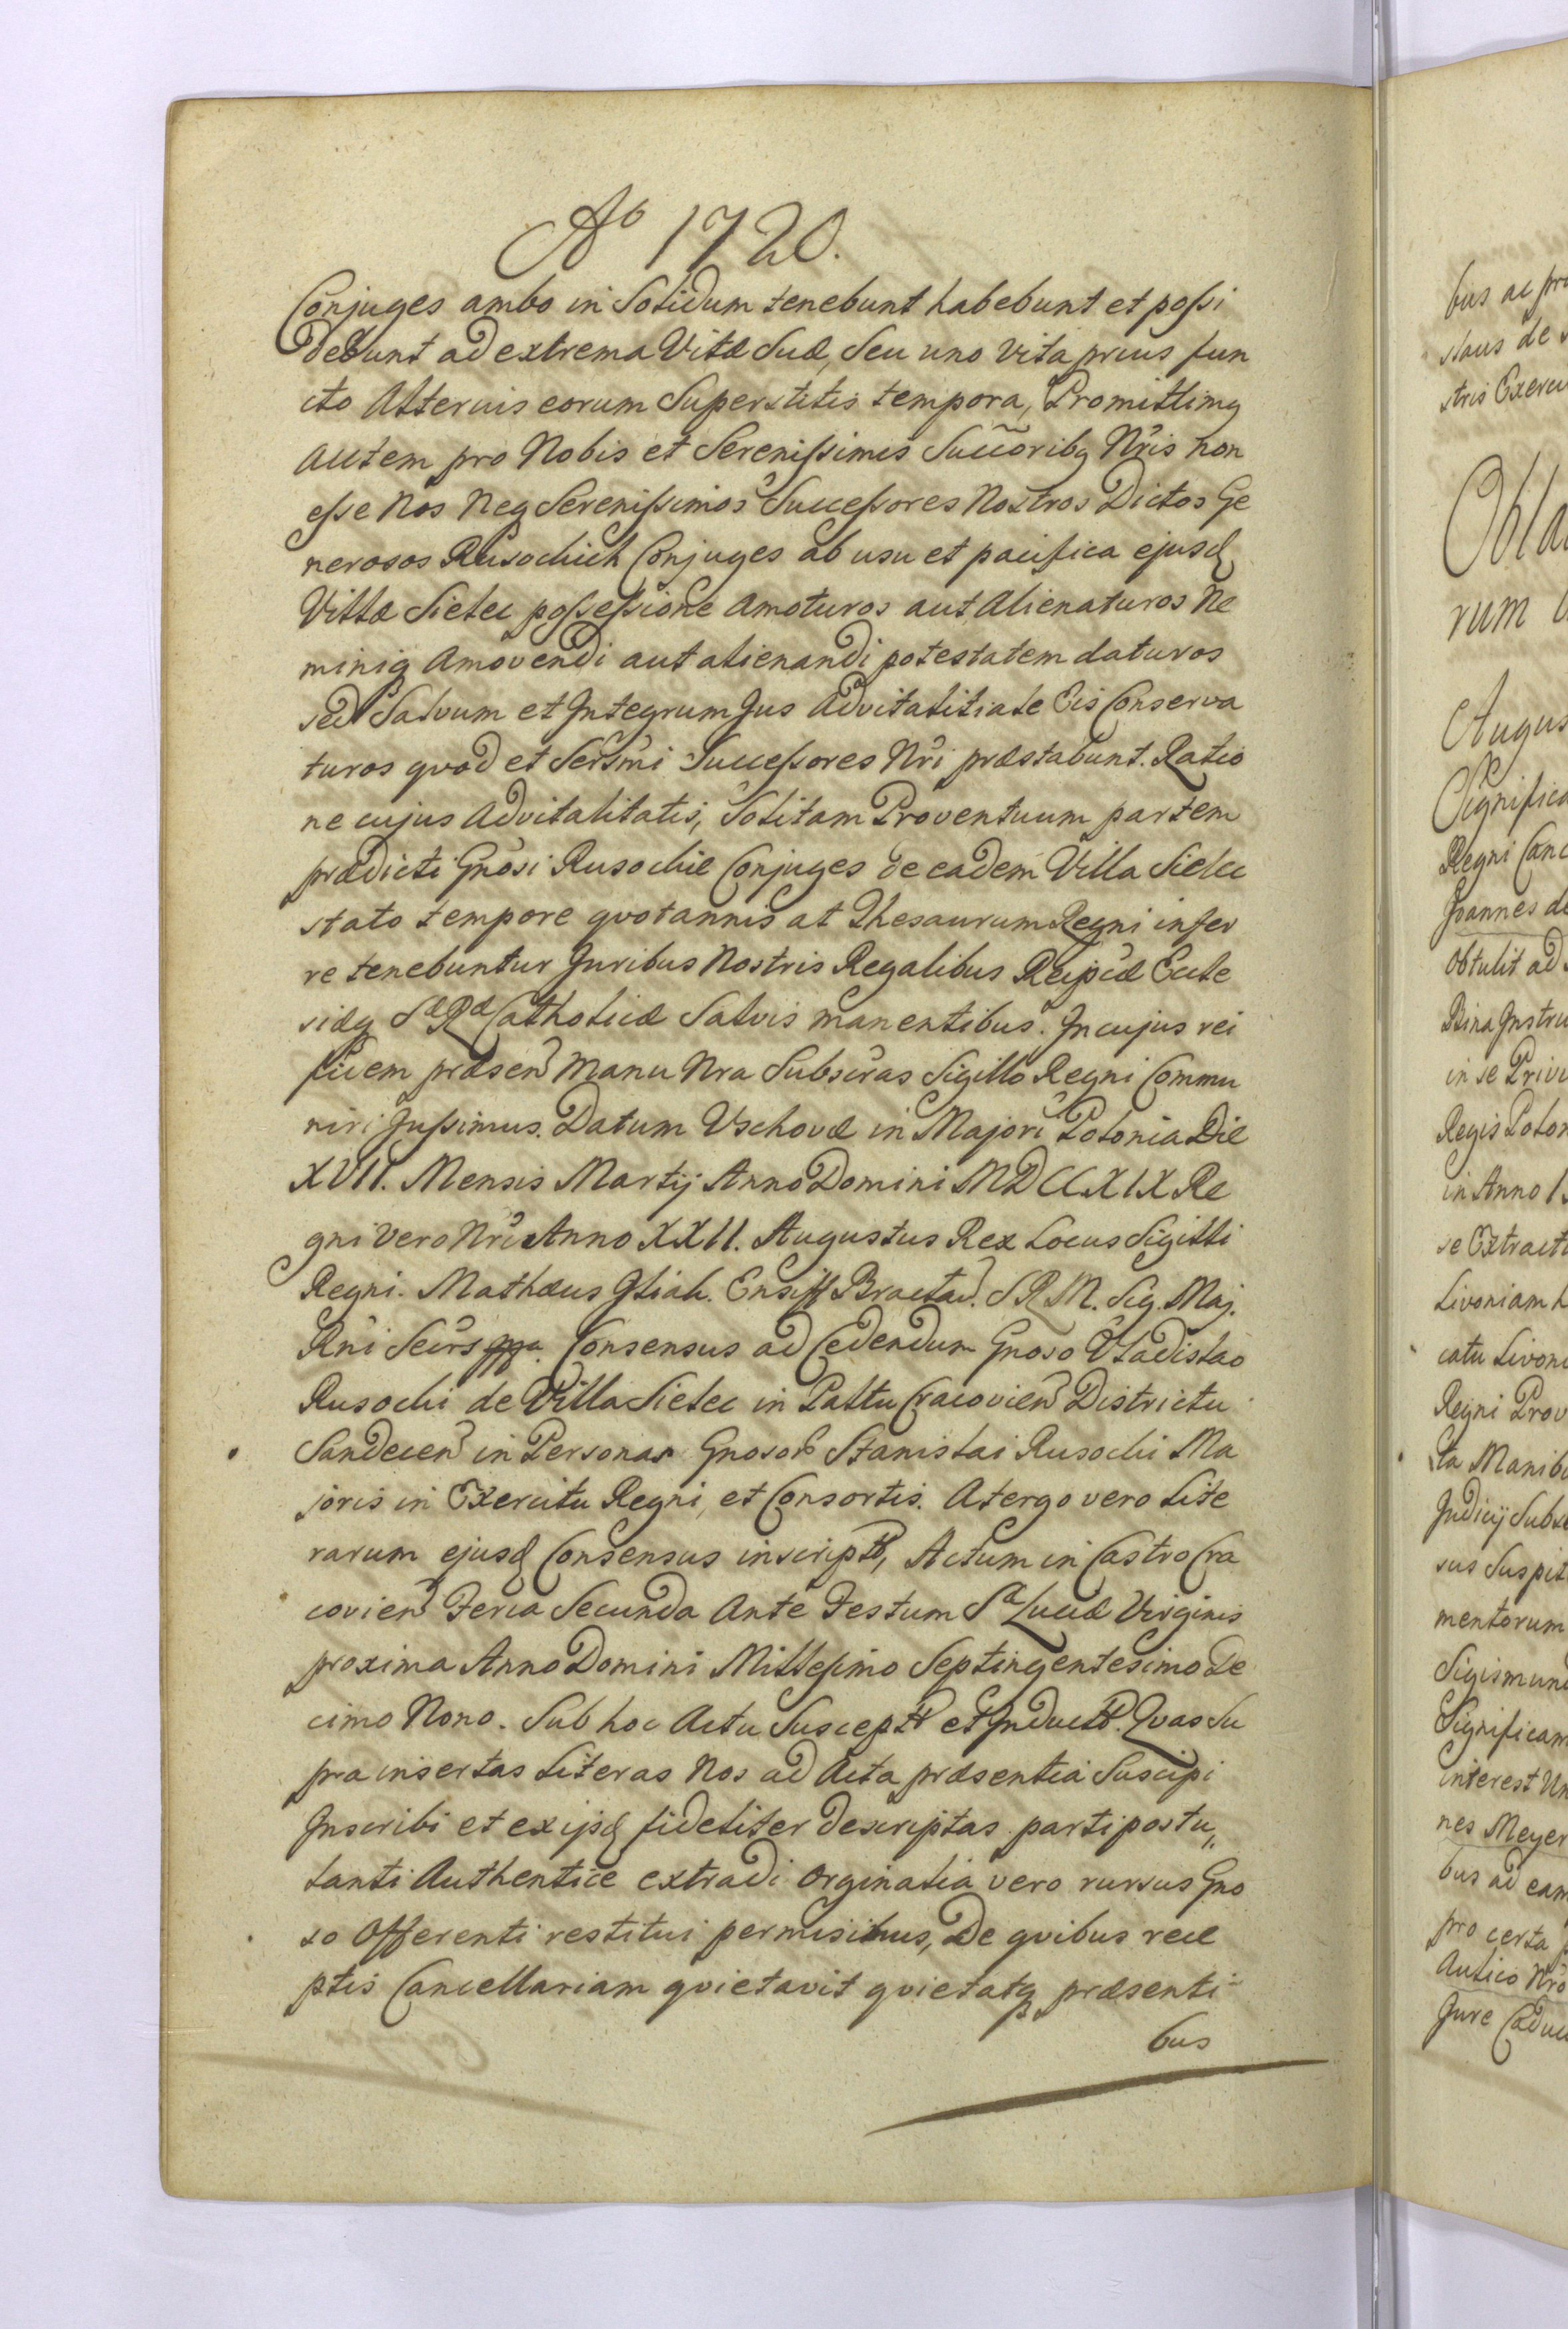 Ao 1720.
Conjuges ambo in Solidum tenebunt habebunt et possi
debunt ad extrema Vitæ Suæ, Seu uno Vita prius fun
cto Alterius eorum Superstitis tempora, Promittimq
autem pro Nobis et Serenissimis Succoribq Nris non
esse Nos Neq Serenissimos Successores Nostros Dictos Ge
nerosos Rusockich Conjuges ab usu et pacifica ejusd
Villæ Sielec possessione Amoturos aut Alienaturos Ne
miniq Amovendi aut alienandi potestatem daturos
sed Salvum et Integrum Jus Advitalitiale Eis Conserva
turos qvod et Sersmi Successores Nri præstabunt. Ratio
ne cujus Advitalitatis, Solitam Proventuum partem
prædicti Gnosi Rusockie Conjuges de eadem Villa Sielec
stato tempore qvotannis at Thesaurum Regni infer
re tenebuntur Juribus Nostris Regalibus Reipcæ Eccle
siæq Sæ Ræ Catholicæ Salvis manentibus. In cujus rei
fidem præsen Manu Nra Subscras Sigillo Regni Commu
niri Jussimus. Datum Vschovæ in Majori Polonia Die
XVII. Mensis Martij Anno Domini MDCCXIX Re
gni vero Nri Anno XXII. Augustus Rex Locus Sigilli
Regni. Mathæus Gliah. Ensiff Bractav. S R M. Sig. Maj.
Rni Secrs mppa. Consensus ad Cedendum Gnoso Vladislao
Rusocki de Villa Sielec in Palttu Cracovien Districtu
Sandecen in Personas Gnosor Stanislai Rusocki Ma
joris in Exercitu Regni, et Consortis. A tergo vero Lite
rarum ejusd Consensus inscript, Actum in Castro Cra
covien Feria Secunda Ante Festum Sæ Luciæ Virginis
proxima Anno Domini Millesimo Septingentesimo De
cimo Nono. Sub hoc Actu Suscept et Induct. Qvas Su
pra insertas Literas Nos ad Acta præsentia Suscipi
Inscribi et ex ijsd fideliter descriptas parti postu„
lanti Authentice extradi Orginalia vero rursus Gno
so Offerenti restitui permisimus, De qvibus rece
ptis Cancellariam qvietavit qvietatq præsenti
bus
bus ac
staus de
stris
rum
Augus
Significa
Regni Canc
Joannes de
Obtulit ad
Bina Instru
in se Privi
Regis Polon
in Anno
se Extract
Livoniam
catu Livoni
Regni Prov
ta Manibu
Judicij Subs
sus Suspit
mentorum
Sigismund
Significam
interest Un
nes Meyer
bus ad eam
pro certa
Aulico Nro
Jure Caduc